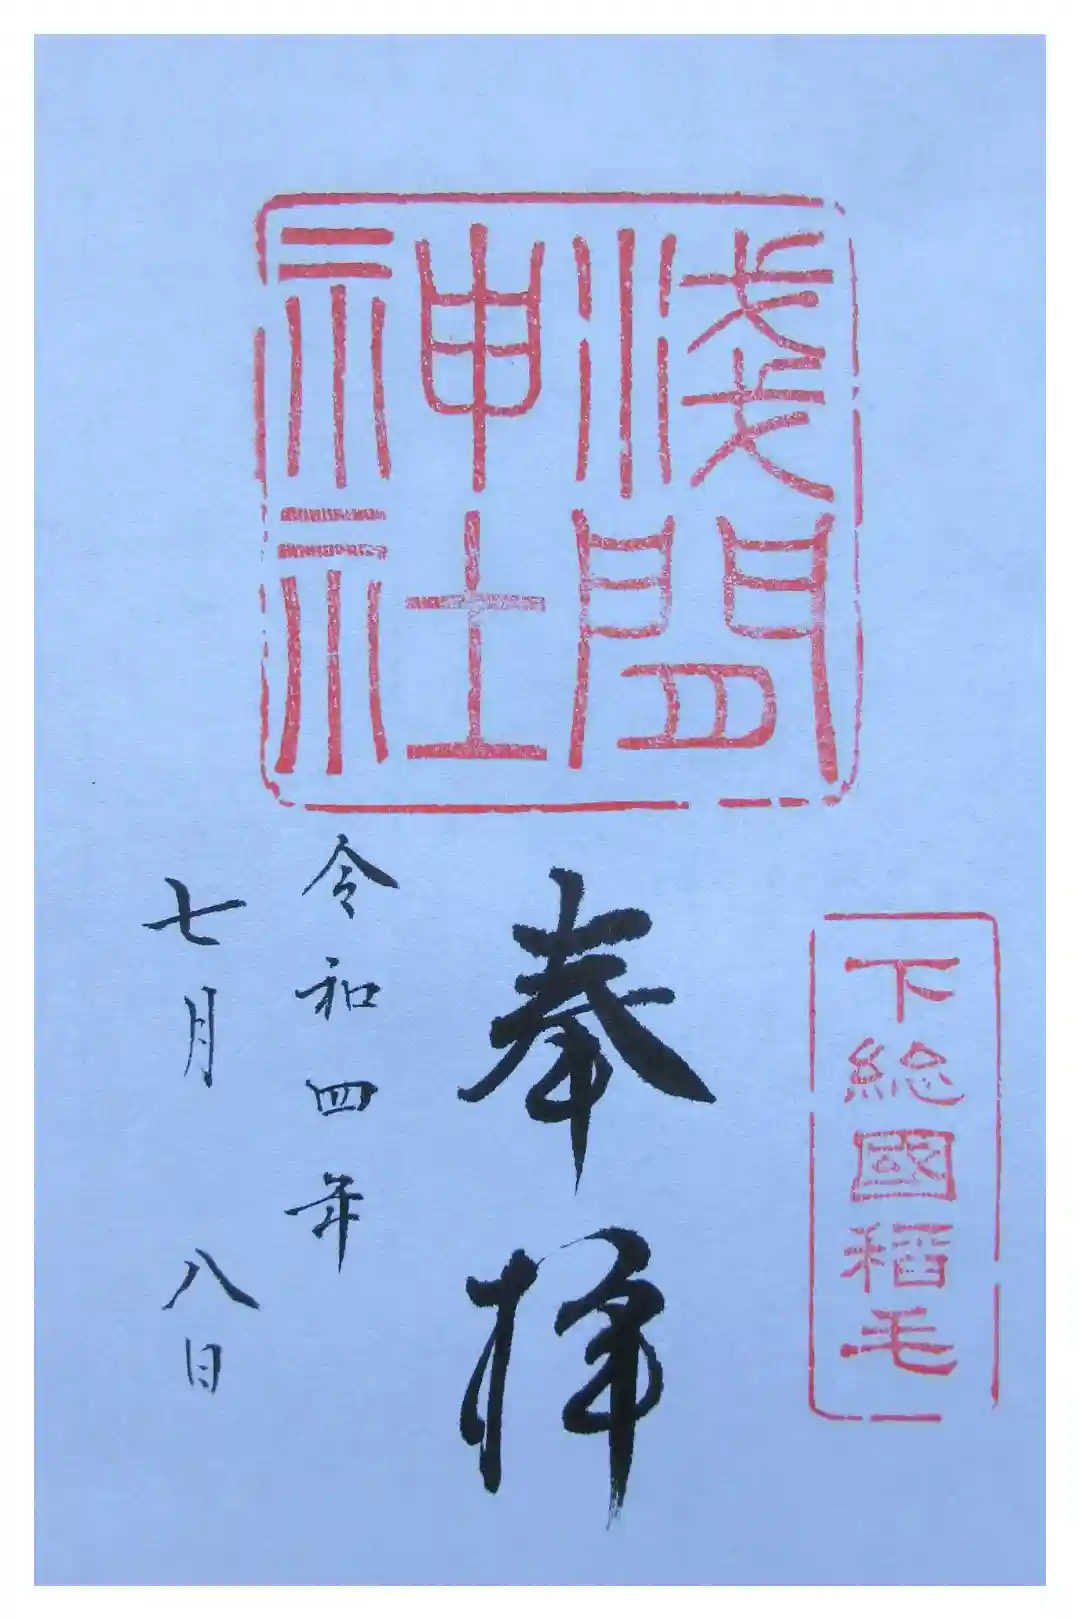 淺間
神社
下総國稻毛
奉拝
令和四年
七月八日